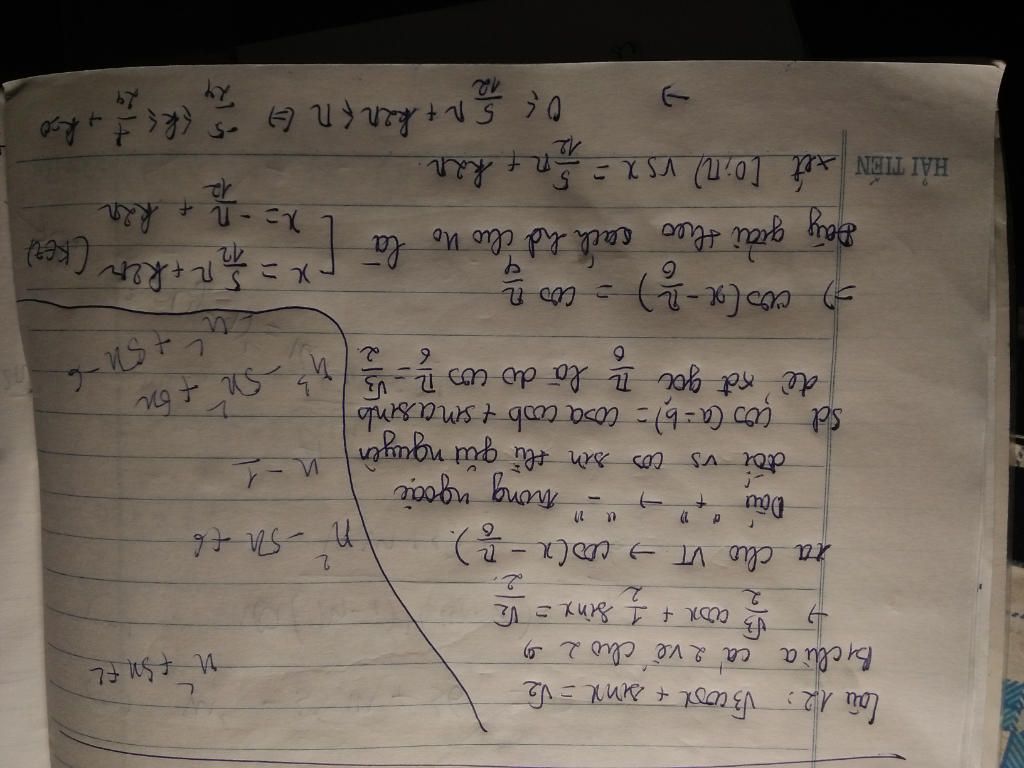 Câu 12: √3cosx + sinx = √2
B₁ chia cả 2 vế cho 2 →
→ √3/2 cosx + 1/2 sinx = √2/2.
ra cho VT → cos(x - π/6).
Dấu "+" → "-" trong ngoặc
đối vs cos sin thì giữ nguyên
Sd cos(a-b) = cosa cosb + sina sinb
để xđ góc π/6 là do cos π/6 = √3/2
=> cos(x - π/6) = cos π/4
Đây giải theo sách hd cho no là [ x = 5/12 π + k2π (k∈Z)
x = -π/12 + k2π
xét [0;π) vs x = 5/12 π + k2π
→ 0 ≤ 5/12 π + k2π ≤ π (=) -5/24 ≤ k ≤ 7/24 → k=0
n² + 5n + 6
n² - 5n + 6
n - 1
n³ - 5n² + 6n
- n² + 5n - 6
HẢI TIẾN